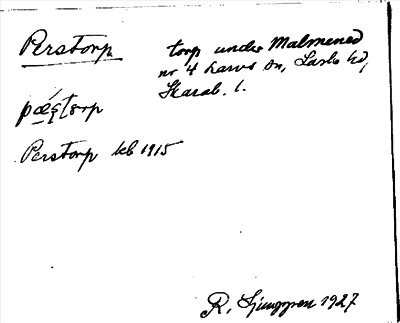 Perstorp
torp under Malmened
nr 4 Larvs sn, Laske hd,
Skarab. l.
pæ̀ʂtorp
Perstorp kb 1915
R. Ljunggren 1927